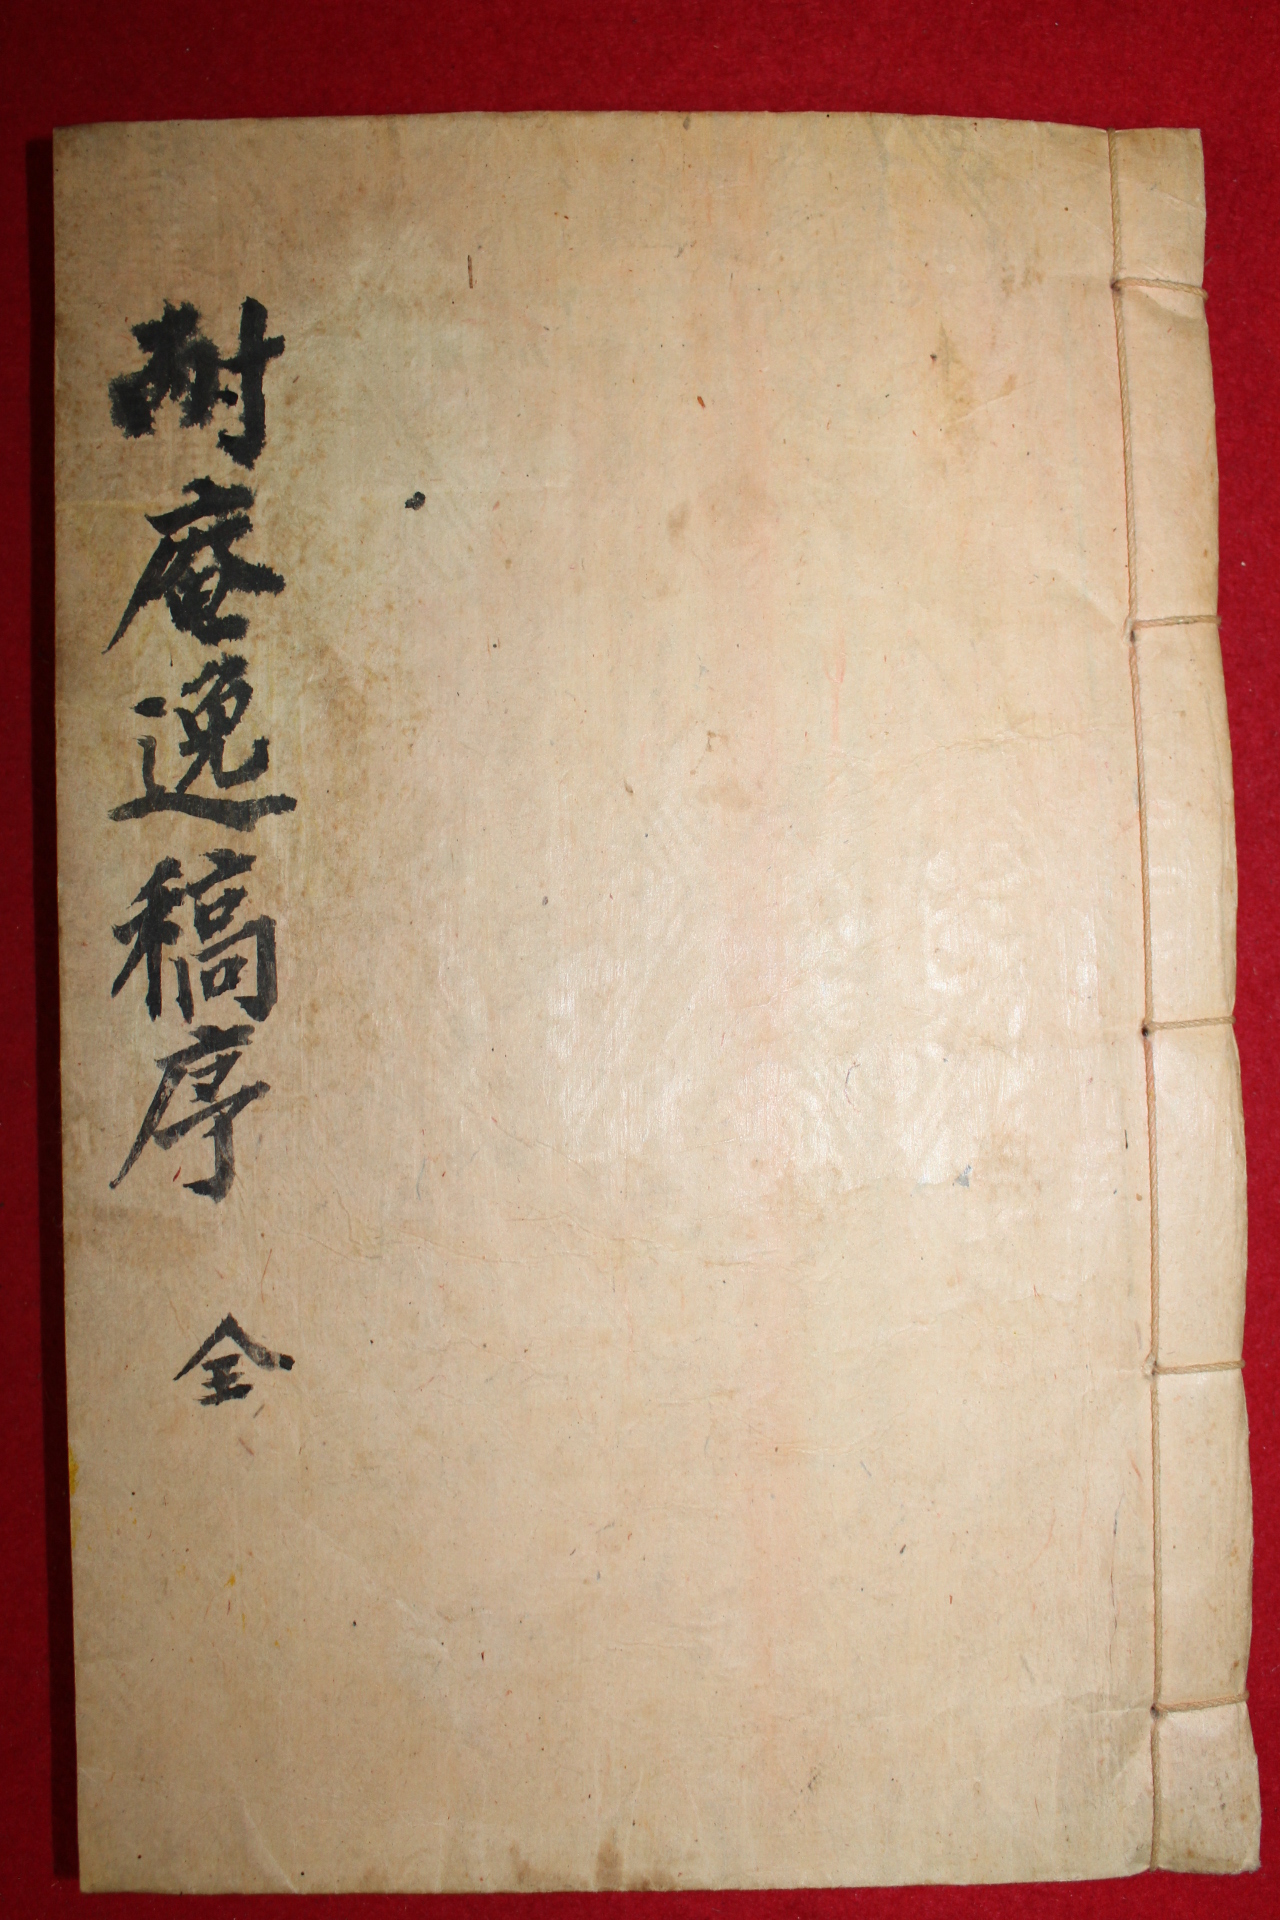 耐庵逸稿序 全